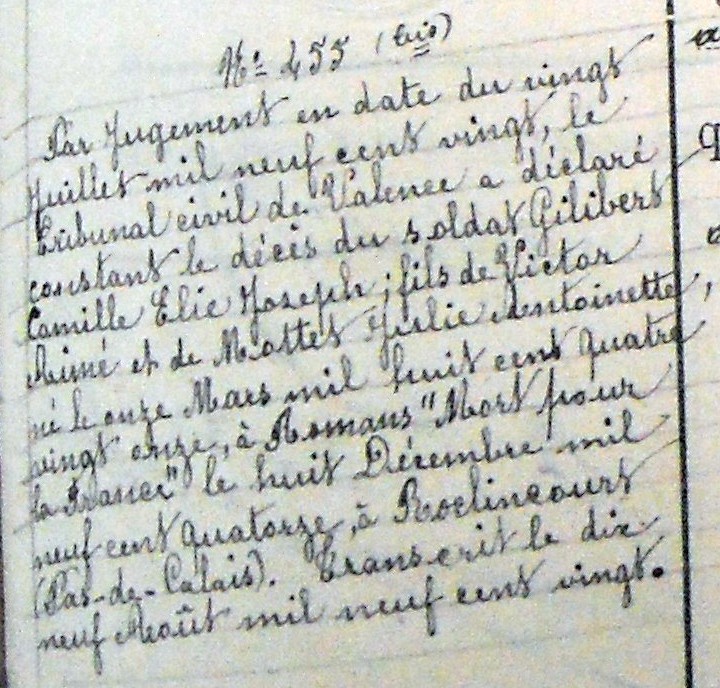 N° 455 (bis)
Par Jugement en date du vingt
Juillet mil neuf cent vingt, le
Tribunal civil de Valence a déclaré
constant le décès du soldat Gilibert
Camille Elie Joseph, fils de Victor
Aimé et de Mottet Julie Antoinette,
né le onze Mars mil huit cent quatre
vingt onze, à Romans "Mort pour
la France" le huit Décembre mil
neuf cent quatorze, à Roclincourt
(Pas-de-Calais). Transcrit le dix
neuf Août mil neuf cent vingt.